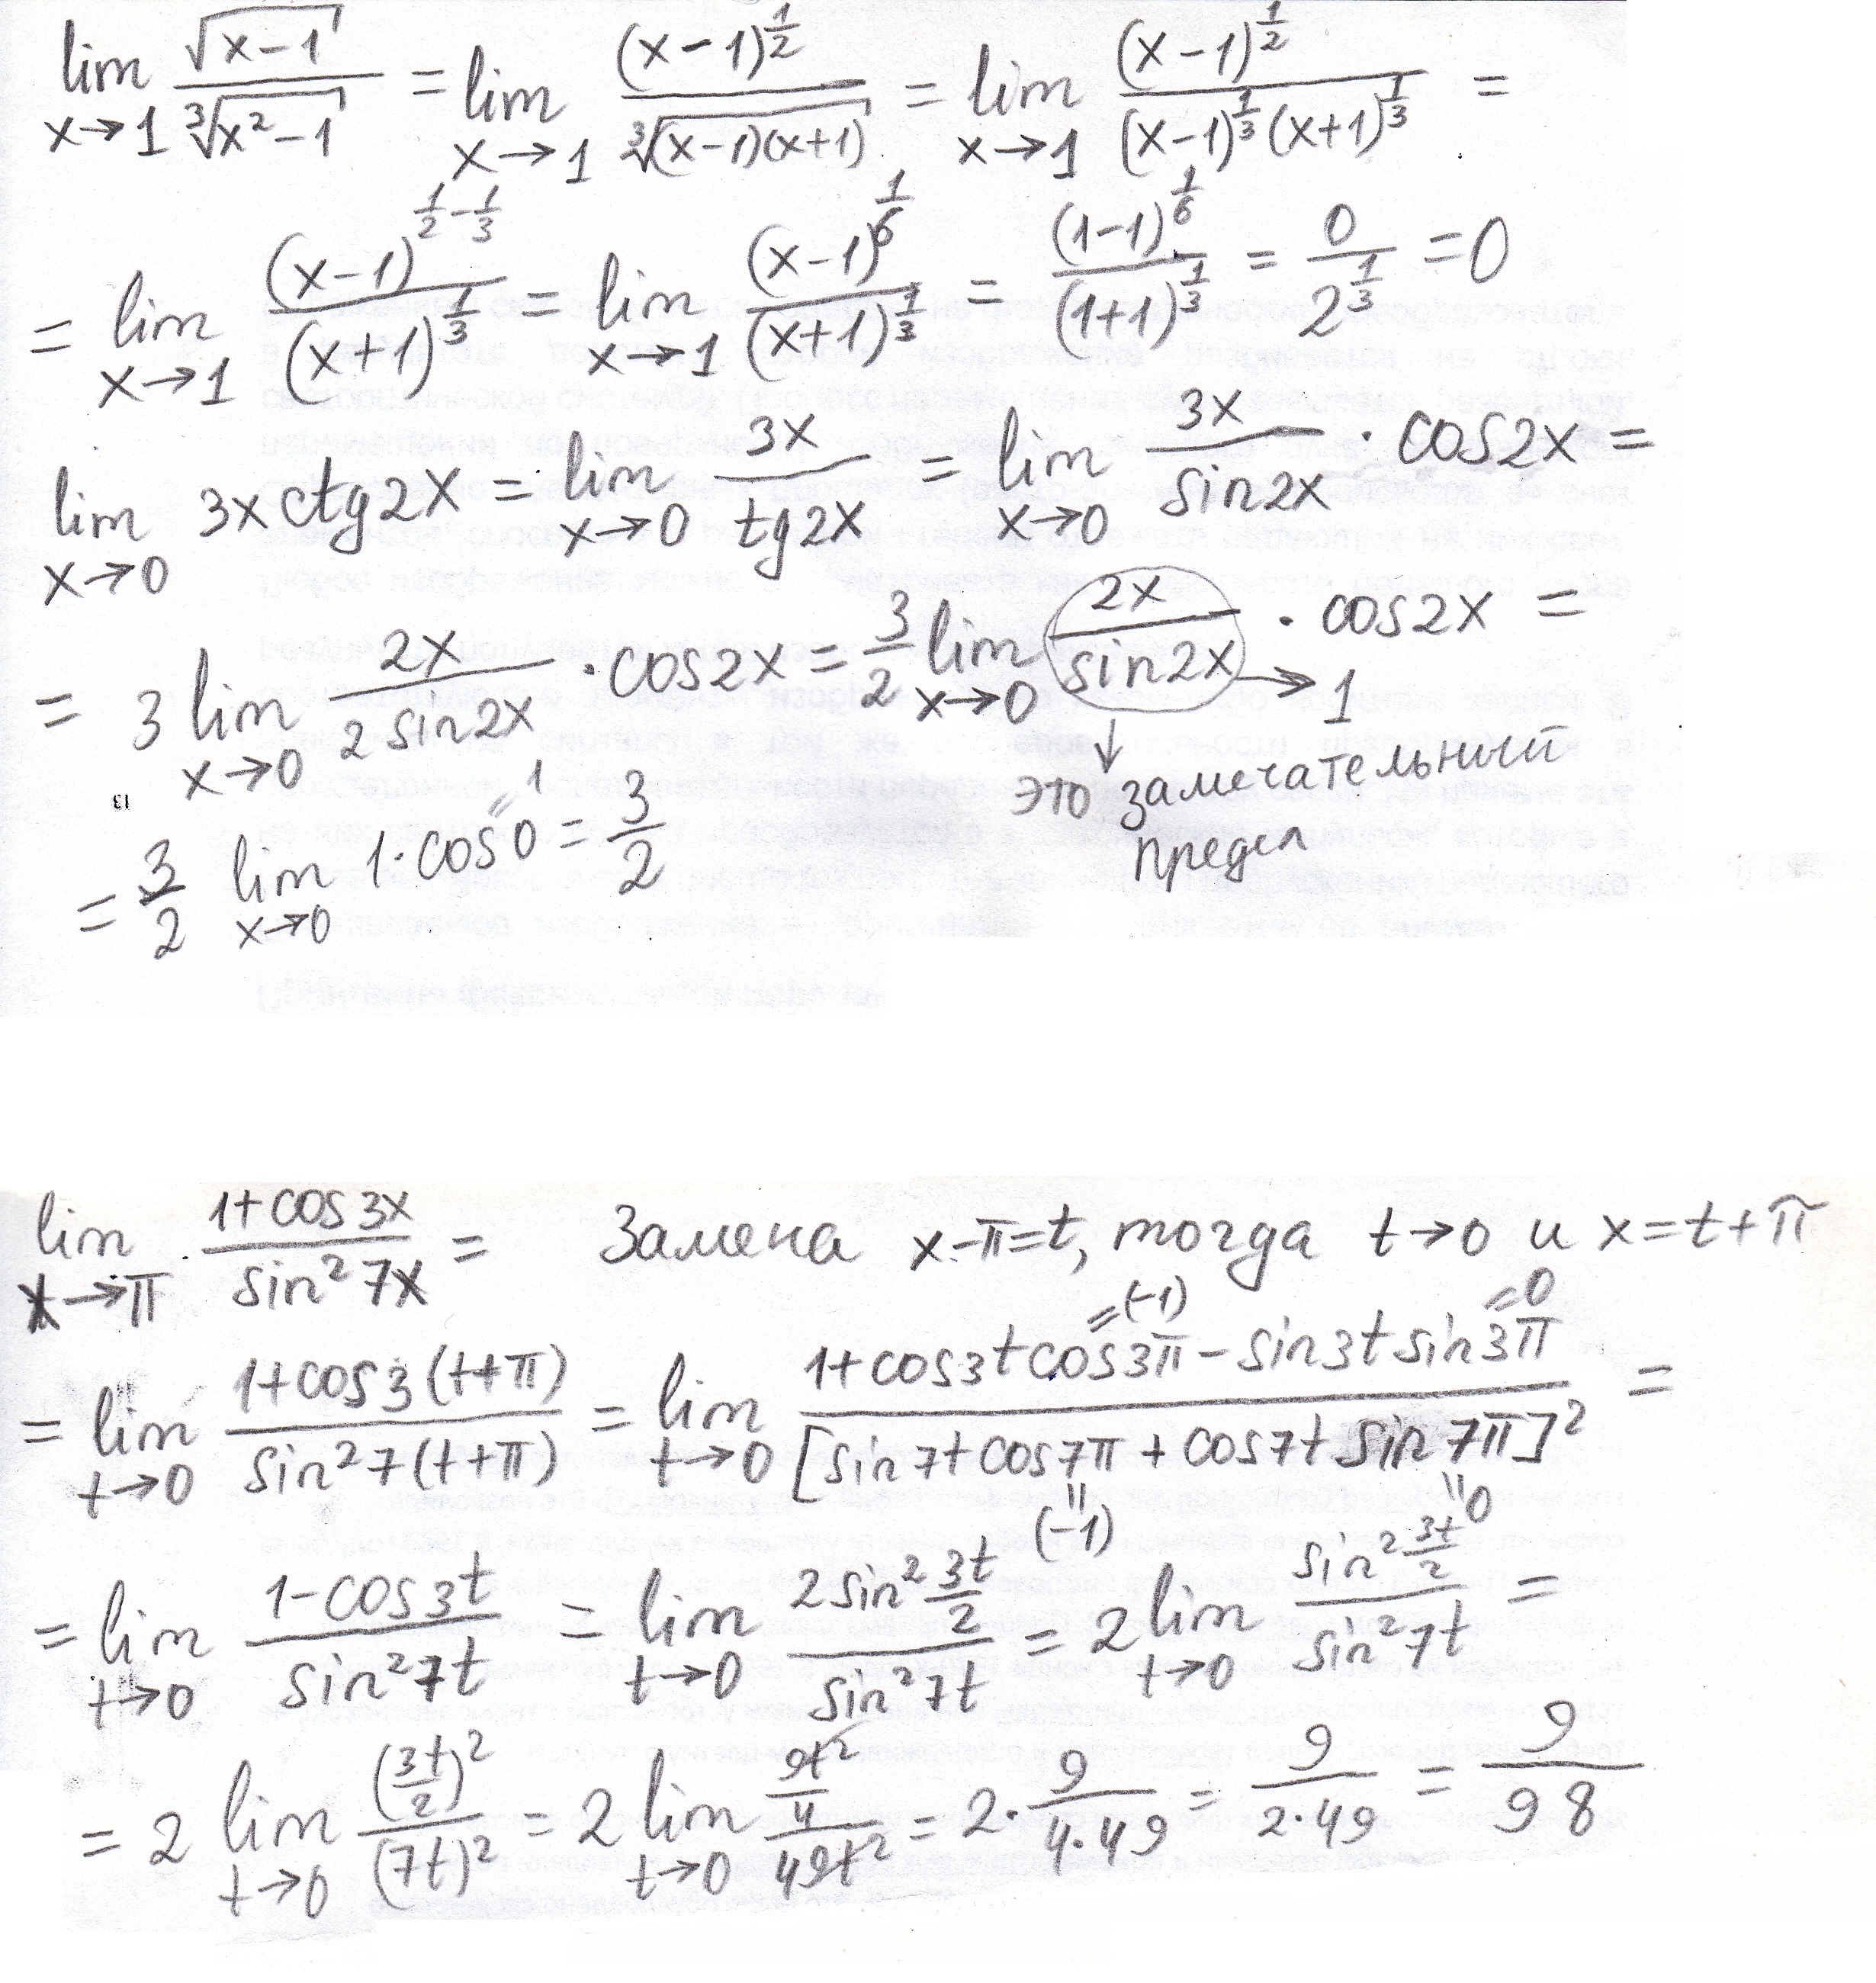 lim x→1 √(x-1) / ∛(x²-1) = lim x→1 (x-1)^(1/2) / ∛((x-1)(x+1)) = lim x→1 (x-1)^(1/2) / ((x-1)^(1/3) (x+1)^(1/3)) =
= lim x→1 (x-1)^(1/2-1/3) / (x+1)^(1/3) = lim x→1 (x-1)^(1/6) / (x+1)^(1/3) = (1-1)^(1/6) / (1+1)^(1/3) = 0 / 2^(1/3) = 0
lim x→0 3x ctg2x = lim x→0 3x / tg2x = lim x→0 3x / sin2x · cos2x =
= 3 lim x→0 2x / 2 sin2x · cos2x = 3/2 lim x→0 2x / sin2x → 1 · cos2x =
↓
это замечательный
предел
13
= 3/2 lim x→0 1·cos0 = 3/2
= 1
lim x→π 1+cos3x / sin²7x = Замена x-π=t, тогда t→0 и x=t+π
= lim t→0 1+cos3(t+π) / sin²7(t+π) = lim t→0 1+cos3t cos3π - sin3t sin3π / [sin7t cos7π + cos7t sin7π]² =
=(-1) =0
=(-1) =0
= lim t→0 1-cos3t / sin²7t = lim t→0 2sin² 3t/2 / sin²7t = 2 lim t→0 sin² 3t/2 / sin²7t =
= 2 lim t→0 (3t/2)² / (7t)² = 2 lim t→0 9t²/4 / 49t² = 2· 9 / 4·49 = 9 / 2·49 = 9 / 98